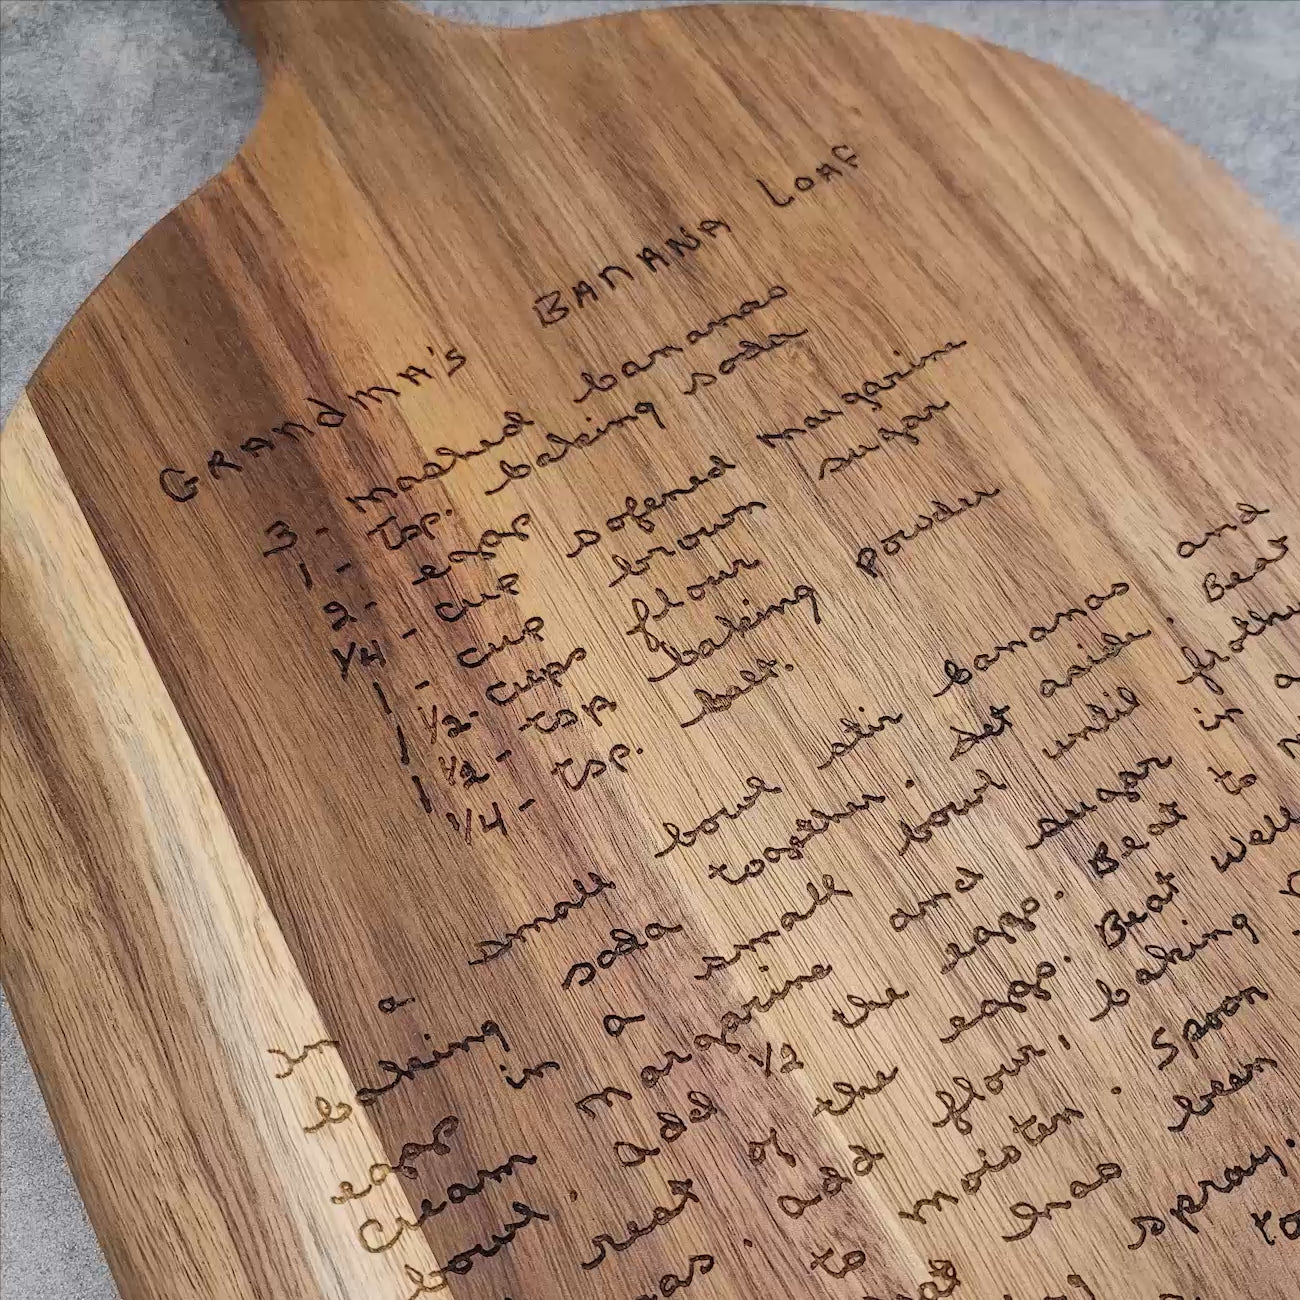 GRANdMA's BANANA LOAF
3 - mashed bananas
1 - tsp. baking soda
2 - eggs
1/4 - cup sofened margarine
1 - cup brown sugar
1 1/2 - cups flour
1 1/2 - tsp baking powder
1/4 - tsp. salt.
In a small bowl stir bananas and
baking soda together. Set aside. Beat
eggs in a small bowl until
Cream margarine and sugar in a
bowl. Add 1/2 the eggs. Beat to
rest of the eggs. Beat well
add flour, baking
to moisten. Spoon
has been
spray.